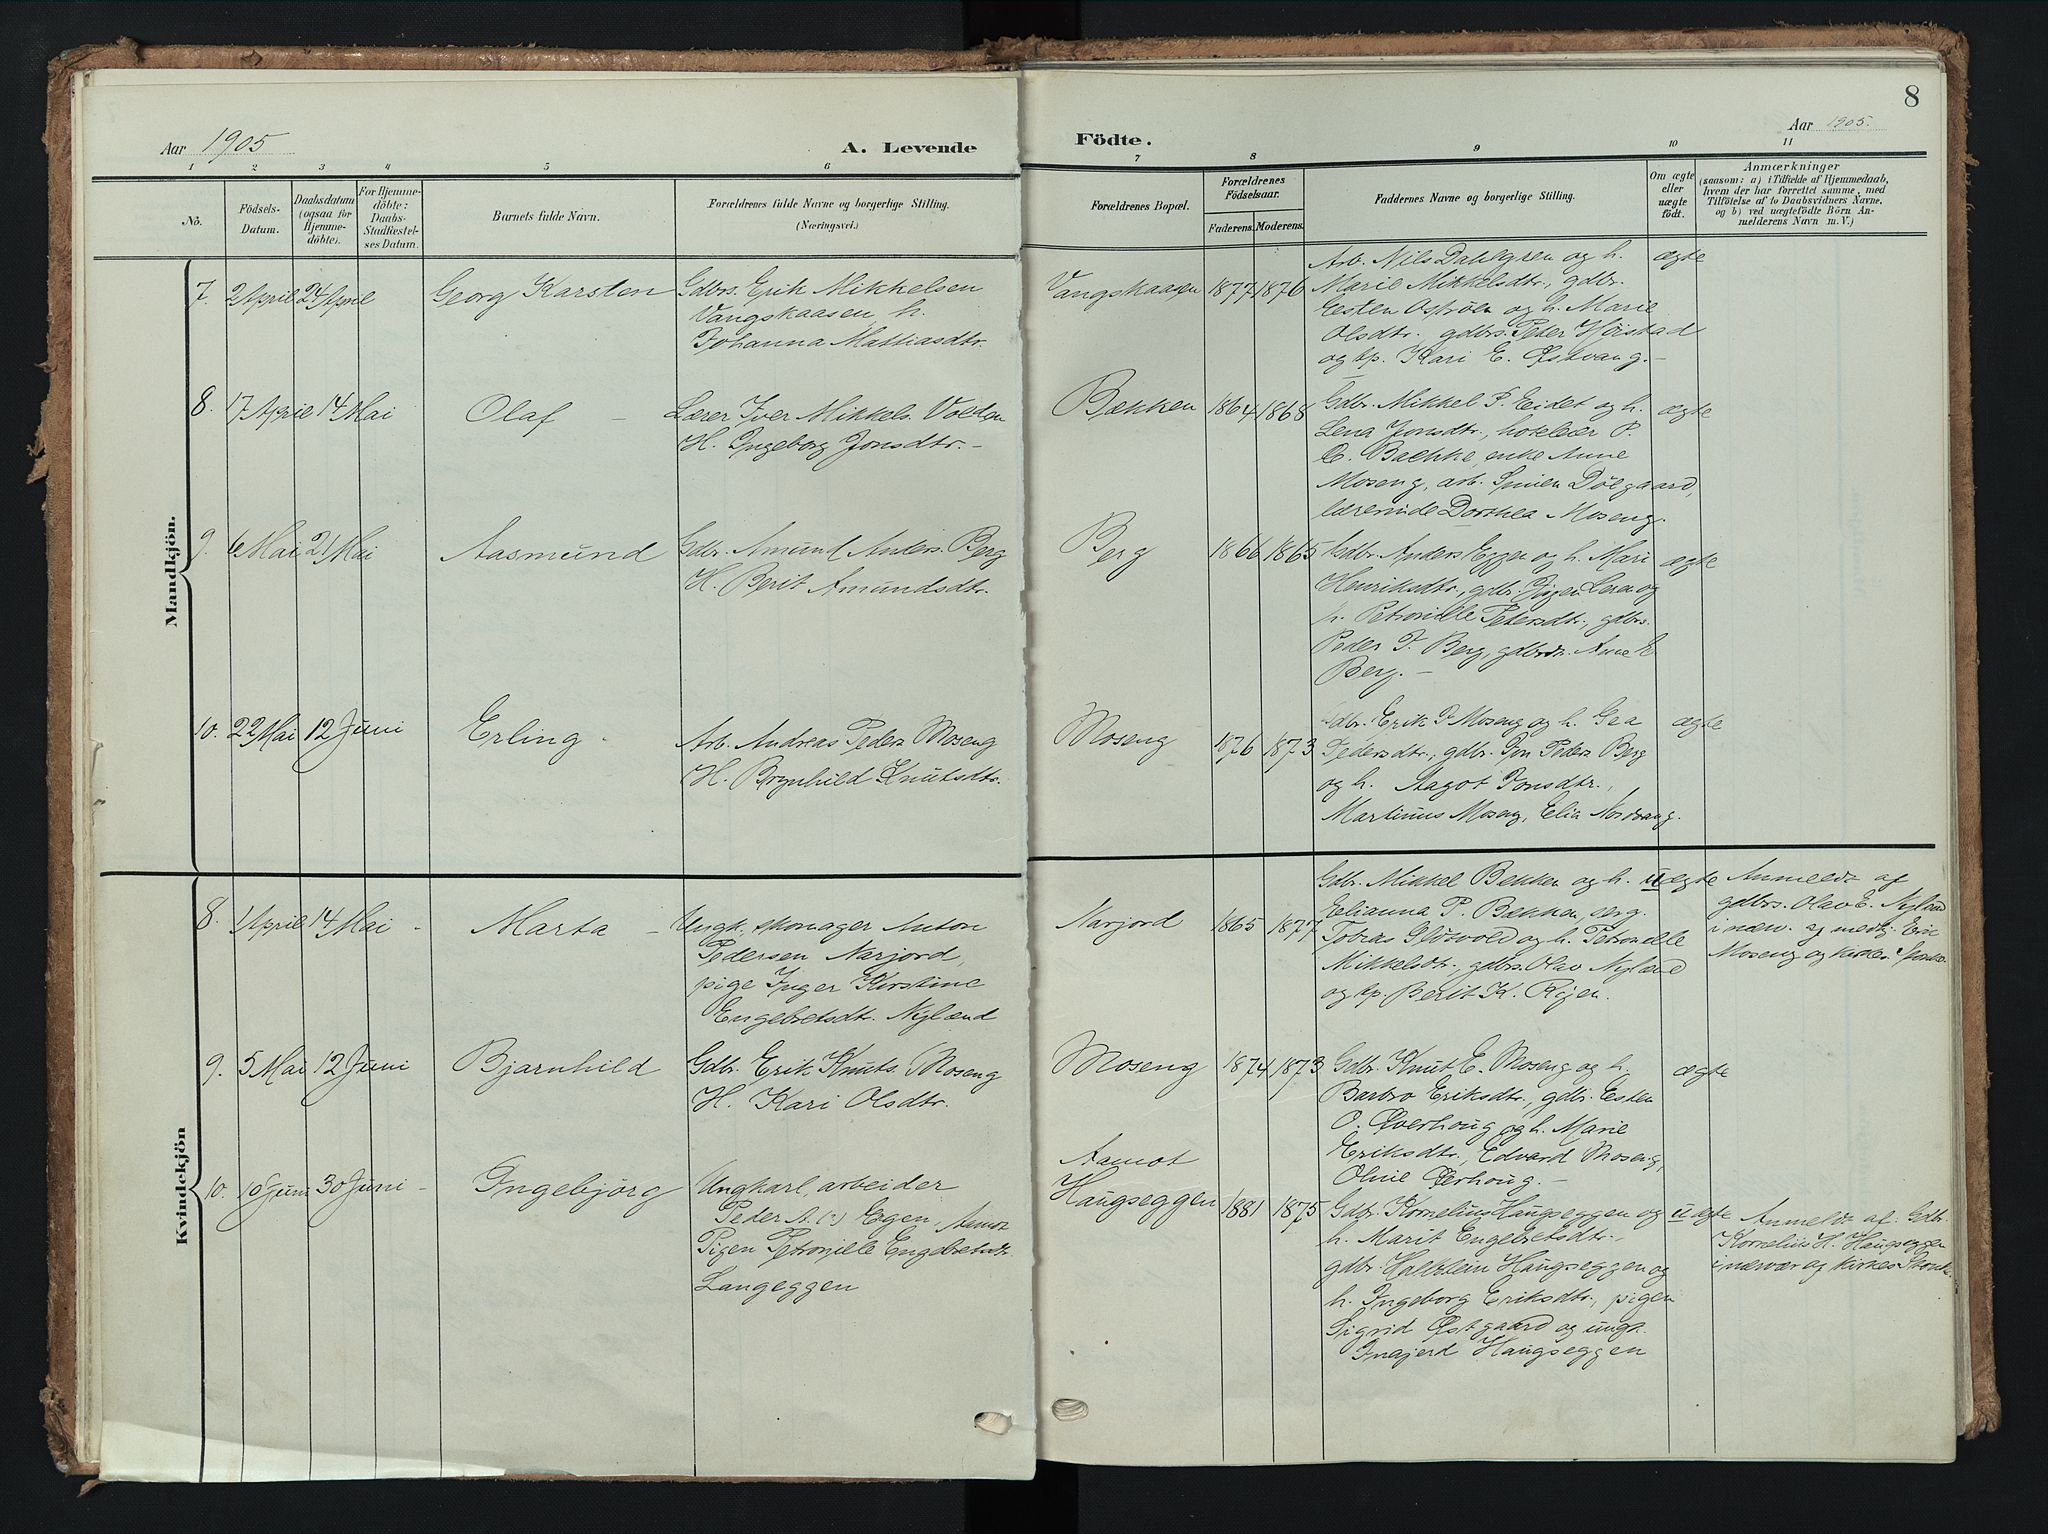 8
Aar 1905
A. Levende
Födte.
Aar 1905.
1 2 3 4 5 6
7 8 9 10 11
No.
Födsels-
Datum.
Daabsdatum
(ogsaa for
Hjemme-
döbte).
For Hjemme-
döbte:
Daabs-
Stadfæstel-
ses Datum.
Barnets fulde Navn.
Forældrenes fulde Navne og borgerlige Stilling.
(Næringsvei.)
Forældrenes Bopæl.
Forældrenes
Födselsaar.
Faderens.
Moderens.
Faddernes Navne og borgerlige Stilling.
Om ægte
eller
uægte
födt.
Anmærkninger
(saasom: a) i Tilfælde af Hjemmedaab,
hvem der har forrettet samme, med
Tilföielse af to Daabsvidners Navne,
og b) ved uægtefödte Börn An-
melderens Navn m. V.)
Mandkjön.
7. 2 April 24 April
Georg Karsten
Gdbrs. Erik Mikkelsen
Vangskaasen h.
Johanna Mattiasdtr.
Vangskaasen 1877 1876
Arb. Nils Dahlgren og h.
Marie Mikkelsdtr., gdbr.
Esten Oströen og h. Marie
Olsdtr. gdbrs. Peter Hjirstad
og tp. Kari E. Østvang. -
ægte
8. 17 April 14 Mai
Olaf -
Lærer Iver Mikkels. Volden
H. Ingeborg Jonsdtr. -
Bækken 1864 1868
Gdbr. Mikkel P. Eidet og h.
Lena Jonsdtr., hoteleier P.
O. Baekke, enke Anne
Moseng, arb. Dölgaard,
lærerinde Dorthea Moseng.
ægte
9. 6 Mai 21 Mai
Aasmund
Gdbr. Amund Anders. Berg
H. Berit Amundsdtr.
Berg 1866 1865
Gdbr. Anders Eggen og h. Mari
Henriksdtr., gdbr. Leren og
h. Petronille Petersdtr., gdbrs.
Peder J. Berg, gdbrdr. Anne E
Berg. -
ægte
10. 22 Mai 12 Juni
Erling -
Arb. Andreas Peders Moseng
H. Brynhild Knutsdtr.
Moseng 1876 1873
Gdbr. Erik P. Moseng og h. Gea
Pedersdtr., gdbr. Jon Peders Berg
og h. Aagot Jonsdtr.,
Martinus Moseng, Elia Nordvang.
ægte
Kvindekjön
8. 1 April 14 Mai -
Marta -
Ungk., skomager Anton
Pedersen Narjord,
pige Inger Kirstine
Engebretsdtr. Nylænd
Narjord 1865 1877
Gdbr. Mikkel Bekken og h.
Elianna P. Bækken, serg.
Tobias Gløsvold og h. Petronelle
Mikkelsdtr., gdbrs. Olav Nylænd
og tp. Berit K. Rijen.
uægte
Anmeldt af
gdbrs. Olav E. Nylænd
i nærv. af medhj. Eric
Moseng og kirkes.
9. 5 Mai 12 Juni
Bjarnhild
Gdbr. Erik Knuts. Moseng
H. Kari Olsdtr.
Moseng 1874 1873
Gdbr. Knut E. Moseng og h.
Barbro Eriksdtr., gdbr. Esten
O. Øverhoug og h. Marie
Eriksdtr., Edvard Moseng,
Oline Øverhoug. -
ægte
10. 10 Juni 30 Juni -
Ingebjörg
Ungkarl, arbeider
Peder A. (?) Egen, Aamot
Pigen Petronille Engebretsdtr.
Langeggen
Aamot
Haugseggen 1881 1875
Gdbr. Kornelius Haugseggen og
h. Marit Engebretsdtr.
gdbr. Halstein Haugseggen og
h. Ingeborg Eriksdtr., pigen
Sigrid Østgaard og ungk.
Haugseggen
uægte
Anmeldt af: Gdbr.
Kornelius H. Haugseggen
i nærvær af kirkes.